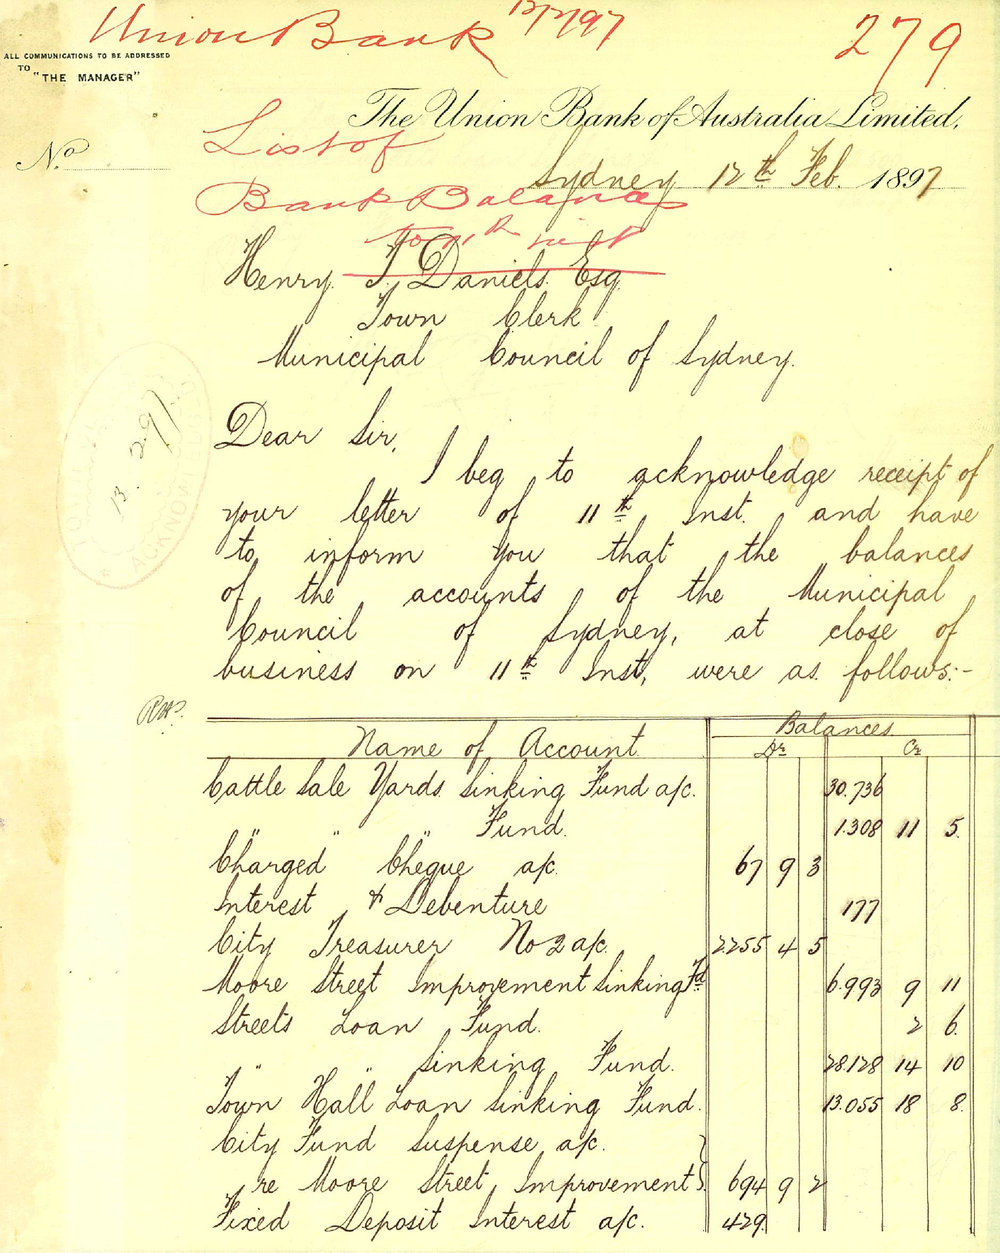 Union Bank 12/2/97
279
ALL COMMUNICATIONS TO BE ADDRESSED
TO "THE MANAGER"
The Union Bank of Australia Limited.
List of
No.
Sydney 12th Feb. 1897
Bank Balances
to 11th inst
Henry T. Daniels Esq.
Town Clerk
Municipal Council of Sydney.
13.2.97
ACKNOWLEDGED
Dear Sir,
I beg to acknowledge receipt of
your letter of 11th Inst. and have
to inform you that the balances
of the accounts of the Municipal
Council of Sydney, at close of
business on 11th Inst, were as follows:-
Name of Account Balances
Dr Cr
Cattle Sale Yards Sinking Fund a/c. 30.736
" " " Fund. 1.308 11 5.
Charged Cheque a/c 67 9 3
Interest & Debenture 177
City Treasurer No 2 a/c. 2255 4 5
Moore Street Improvement Sinking Fd 6.993 9 11
Streets Loan Fund. 2 6.
" " Sinking Fund. 28.128 14 10
Town Hall Loan Sinking Fund. 13.055 18 8.
City Fund Suspense a/c.
re Moore Street Improvement 694 9 2
Fixed Deposit Interest a/c. 429.